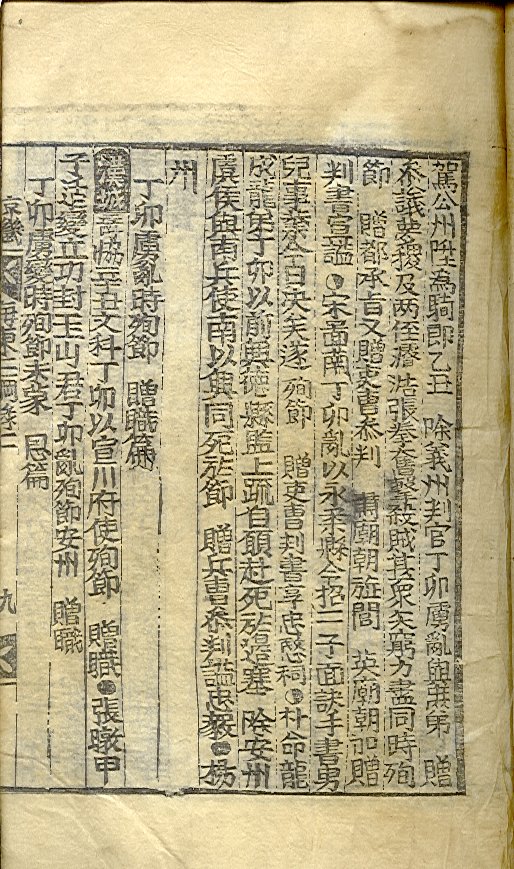 駕公州陞為騎郎乙丑 除義州判官丁卯虜亂與其弟 贈
叅議夢稷及两侄濬浩張拳奮擊殺賊甚衆矢窮力盡同時殉
節 贈都承旨又贈吏曹叅判 肅廟朝旌閭 英廟朝加贈
判書宣謚●宋圖南丁卯亂以永柔縣令招二子面訣手書男
兒事業令百决矢遂殉節 贈吏曹判書享忠愍祠●朴命龍
成龍弟丁卯以前興德縣監上疏自願赴死於邊塞 除安州
虞侯與南兵使南以興同死於節 贈兵曹叅判謚忠毅●楊
州
丁卯虜亂時殉節 贈職篇
協辛丑文科丁卯以宣川府使殉節 贈職●張暾甲
子适變立功封玉山君丁卯亂殉節安州 贈職
丁卯虜變時殉節未蒙 恩篇
東三綱 二
九